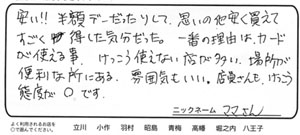 安い!! 半額デーだったりして、思いの他安く買えて
すごく得した気分だった。一番の理由は、カード
が使える事、けっこう使えない店が多い。場所が
便利な所にある、雰囲気もいい。店員さんも、けっこう
態度が〇です。
ニックネーム ママさん
よく利用されるお店を
〇で囲んでください。 立川 小作 羽村 昭島 青梅 高幡 堀之内 八王子